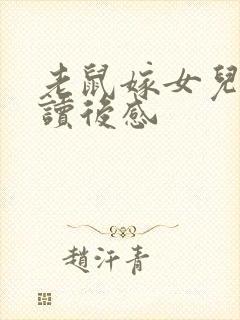 老鼠嫁女兒
讀後感
趙汗青